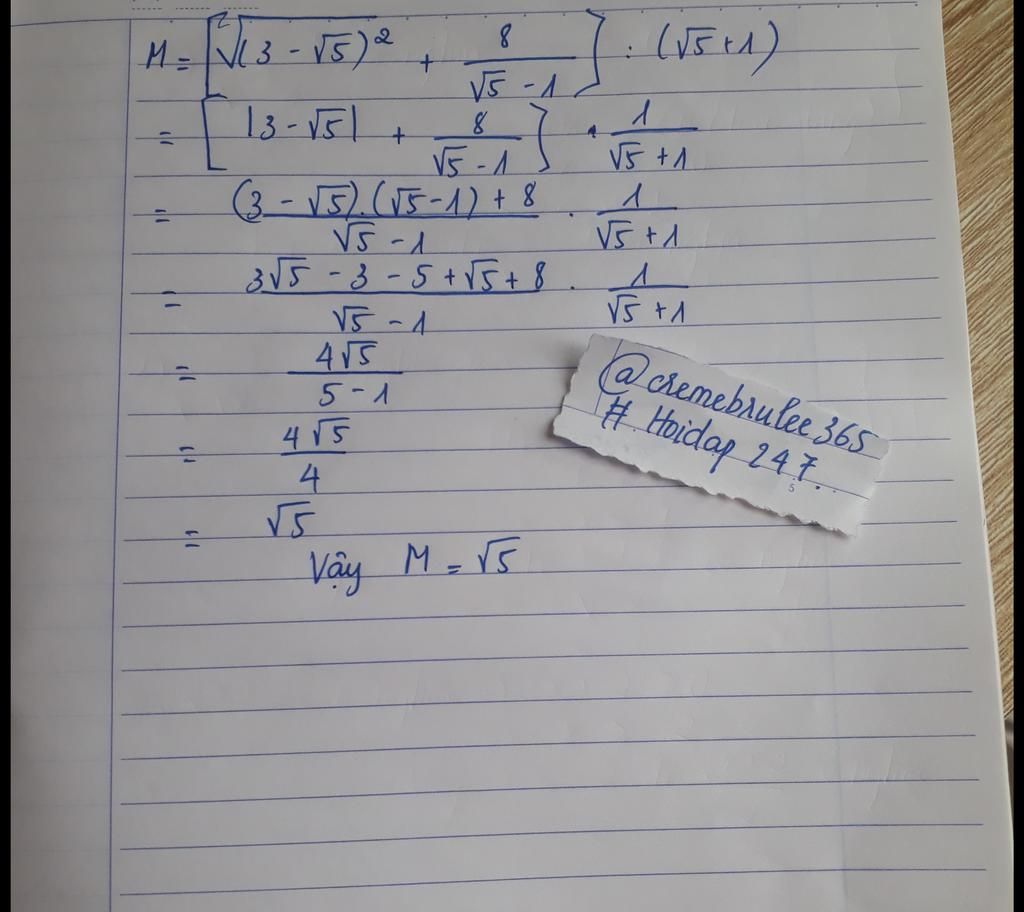 M = [²√(3 - √5)² + 8/(√5 - 1)] : (√5 + 1)
= [|3 - √5| + 8/(√5 - 1)] · 1/(√5 + 1)
= ((3 - √5).(√5 - 1) + 8)/(√5 - 1) · 1/(√5 + 1)
= (3√5 - 3 - 5 + √5 + 8)/(√5 - 1) · 1/(√5 + 1)
= 4√5/(5 - 1)
= 4√5/4
= √5
Vậy M = √5
@cremebrulee365
# Hoidap 247.